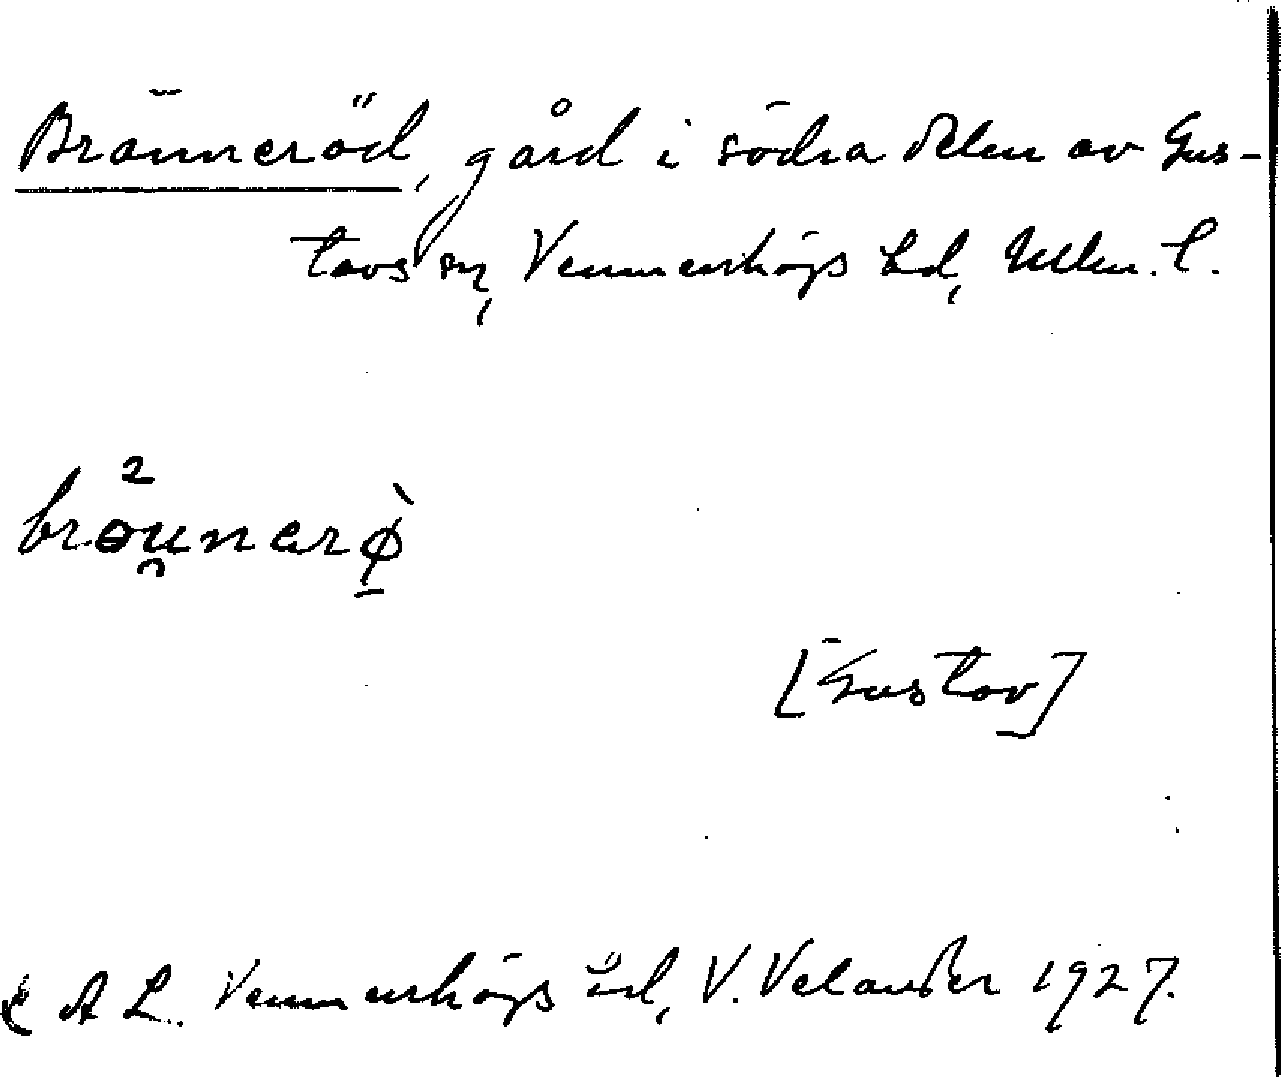 Bränneröd, gård i södra delen av Gus-
tavs sn, Vemmenhögs hd, Mlm. l.
[Gustav]
D A L. Vemmenhögs hd, V. Velander 1927.